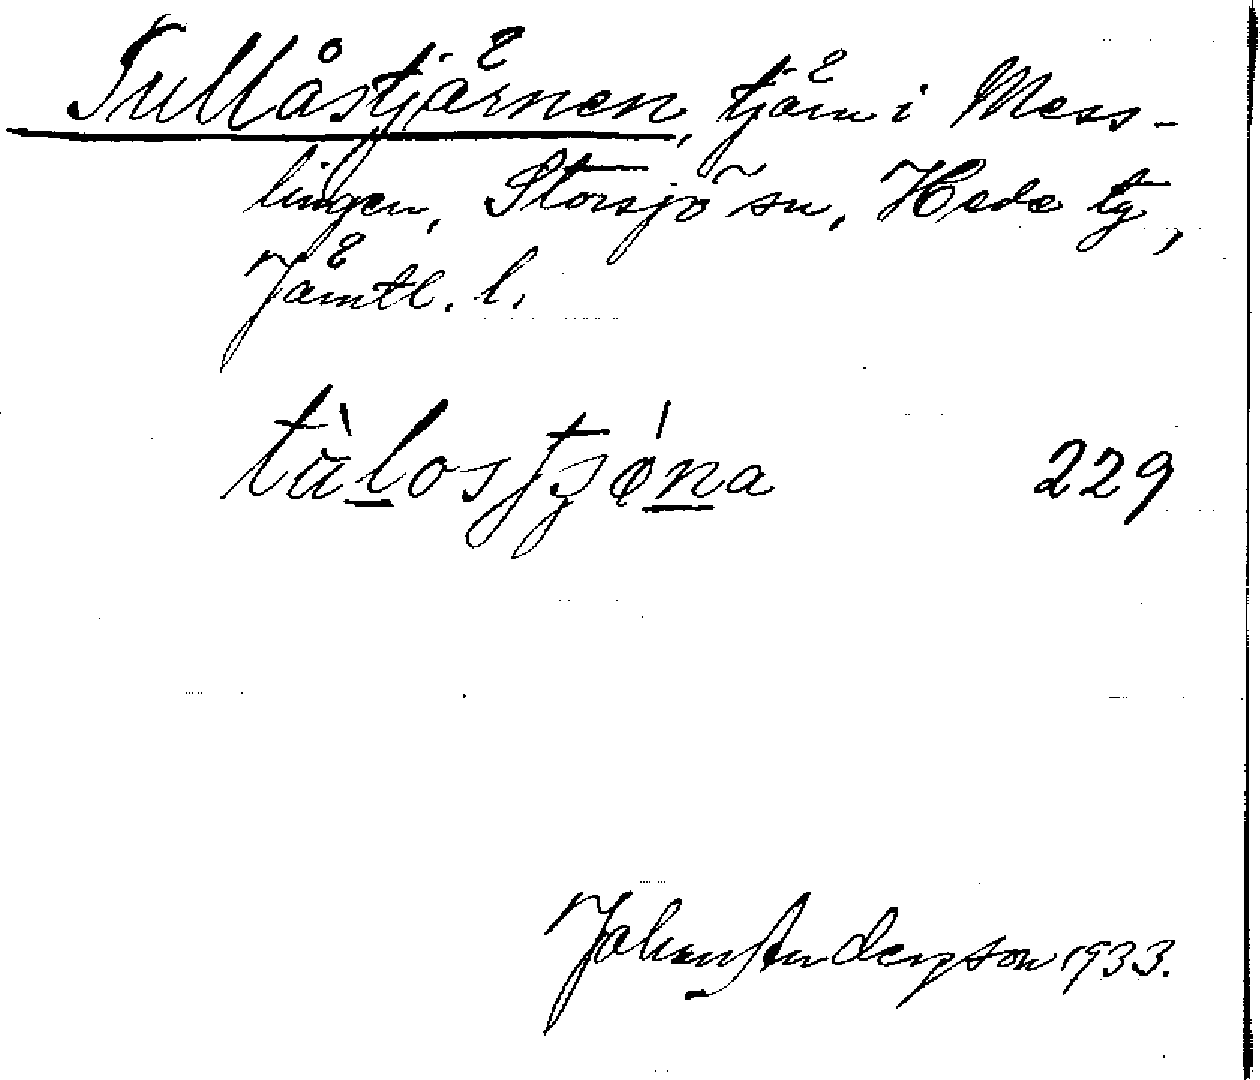 Tullåstjärnen, tjärn i Mess-
lingen, Storsjö sn, Hede tg,
Jämtl. l.
229
Johan Anderson 1933.